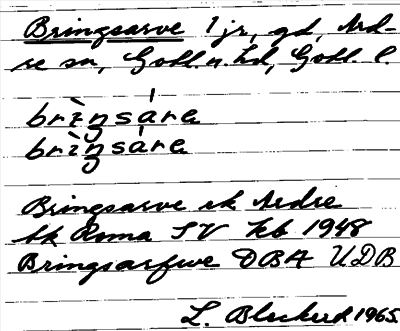 Bringsarve 1 jr, gd, Ard-
re sn, Gotl. n. hd, Gotl. l.
brìŋsárɐ
brìŋsárɐ
Bringsarve ek Ardre
bk Roma SV Kb 1948
Bringsarfwe DBA UDB
L. 1965.